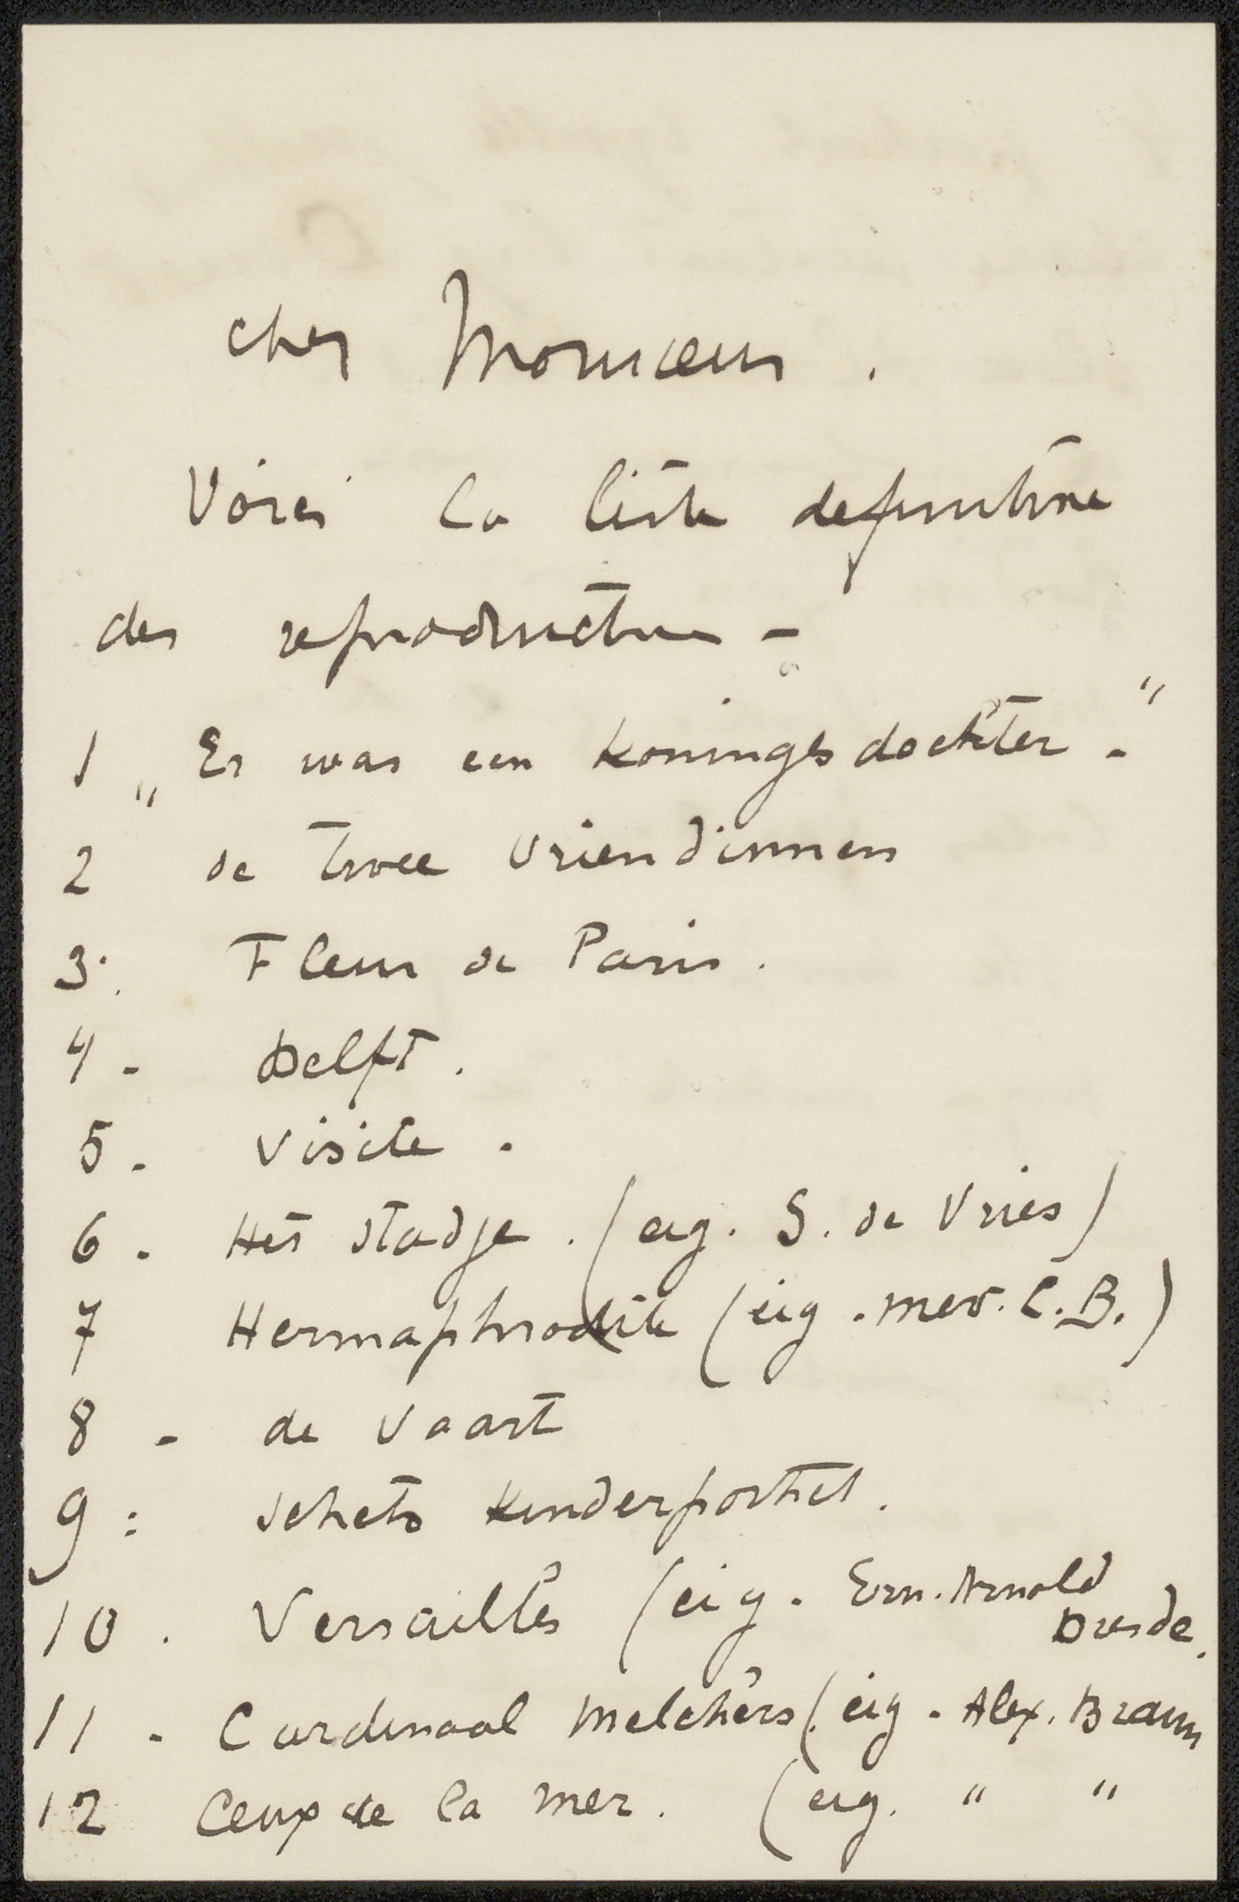 cher Monsieur.
Voici la liste definitive
des reproductions -
1 „Er was een koningsdochter."
2 de twee vriendinnen
3. Fleur de Paris.
4 - Delft.
5 - Visite.
6 - Het stadje. (eig. S. de Vries)
7 Hermaphrodite (eig. mev. C. B.)
8 - de Vaart
9: schets kinderportret.
10. Versailles (eig. Ern. Arnold
Dresde.
11 - Cardinaal Melchers (eig. Alex. Braun
12 Ceux de la mer. (eig. " "